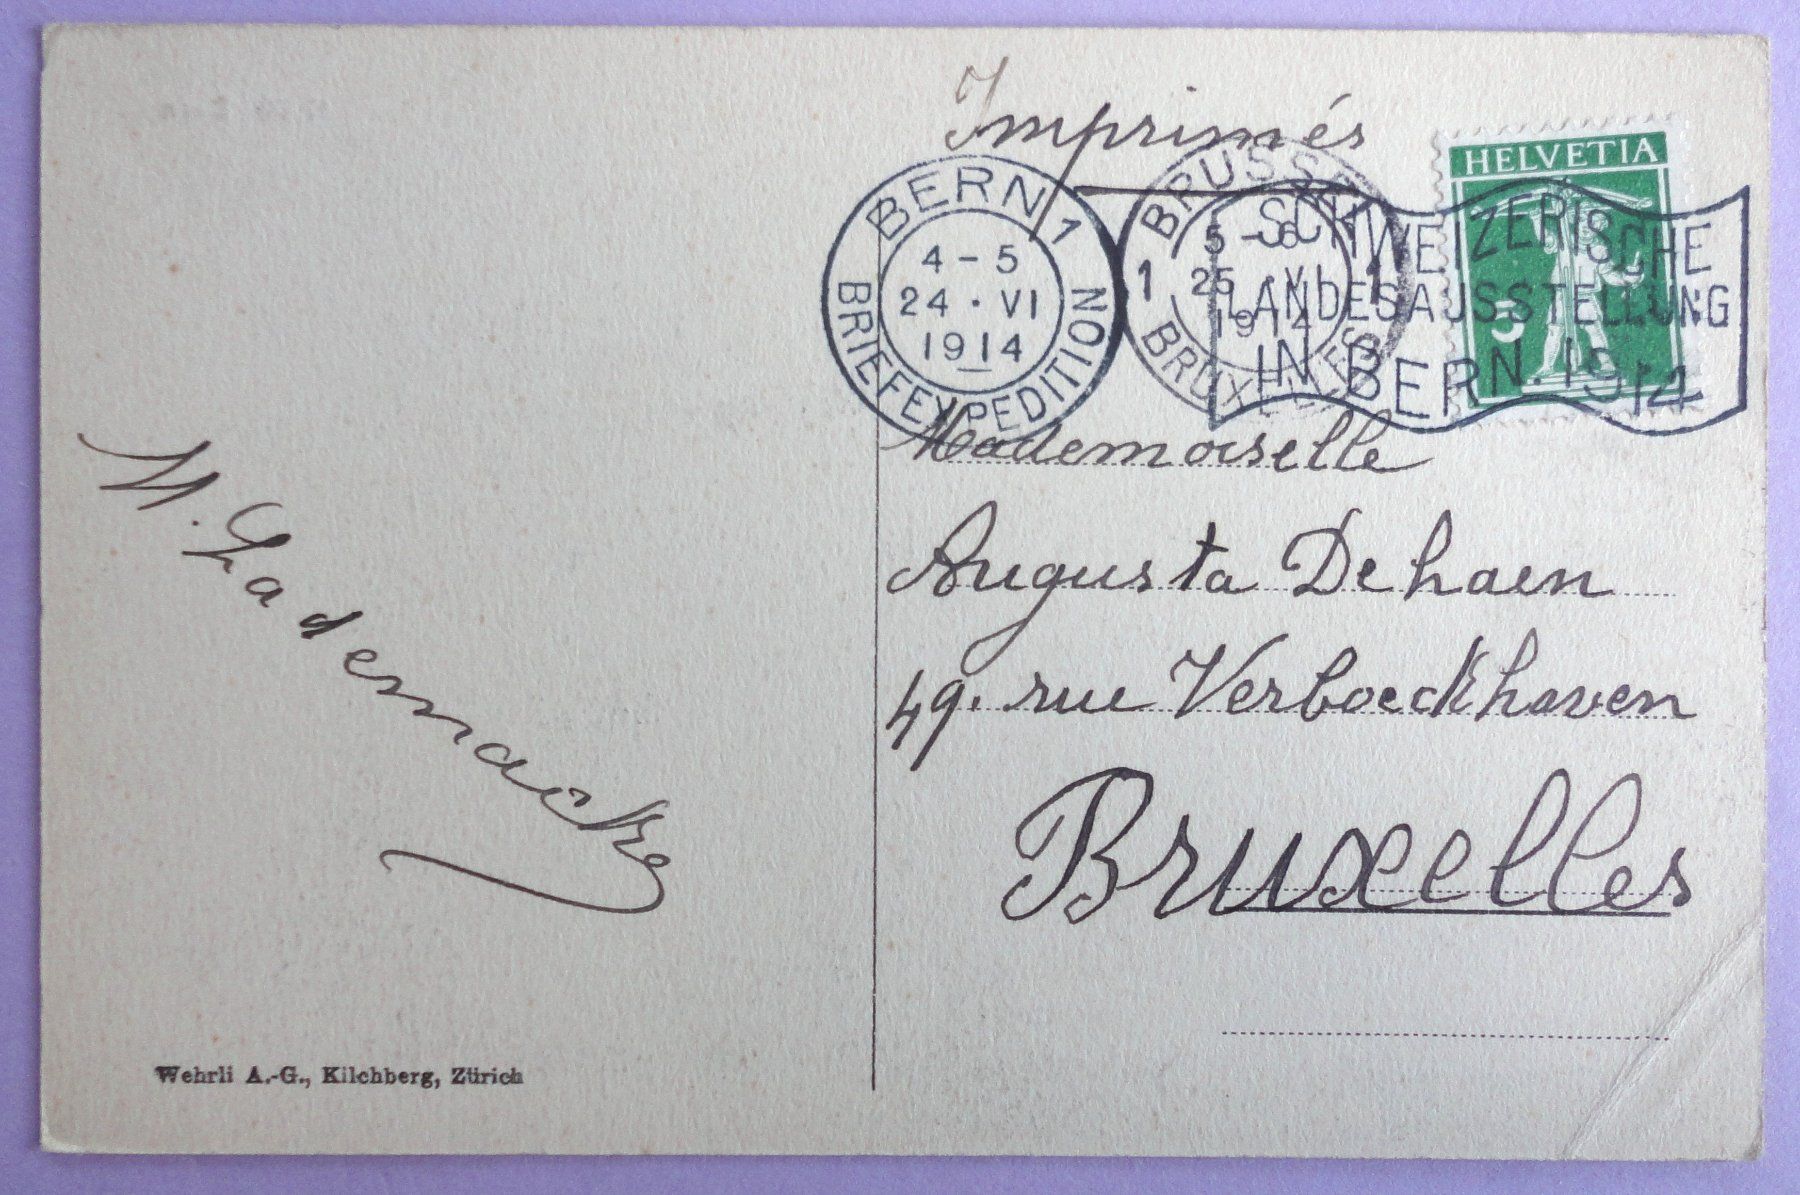 Imprimés
HELVETIA
5
BERN 1
4-5
24 · VI
1914
BRIEFEXPEDITION
BRUSSEL
1 1
5-6
25 VI
1914
BRUXELLES
SCHWEIZERISCHE
LANDESAUSSTELLUNG
IN BERN. 1914
Mademoiselle
Augusta Dehaen
49. rue Verboeckhaven
Bruxelles
M. Lademacke
Wehrli A.-G., Kilchberg, Zürich